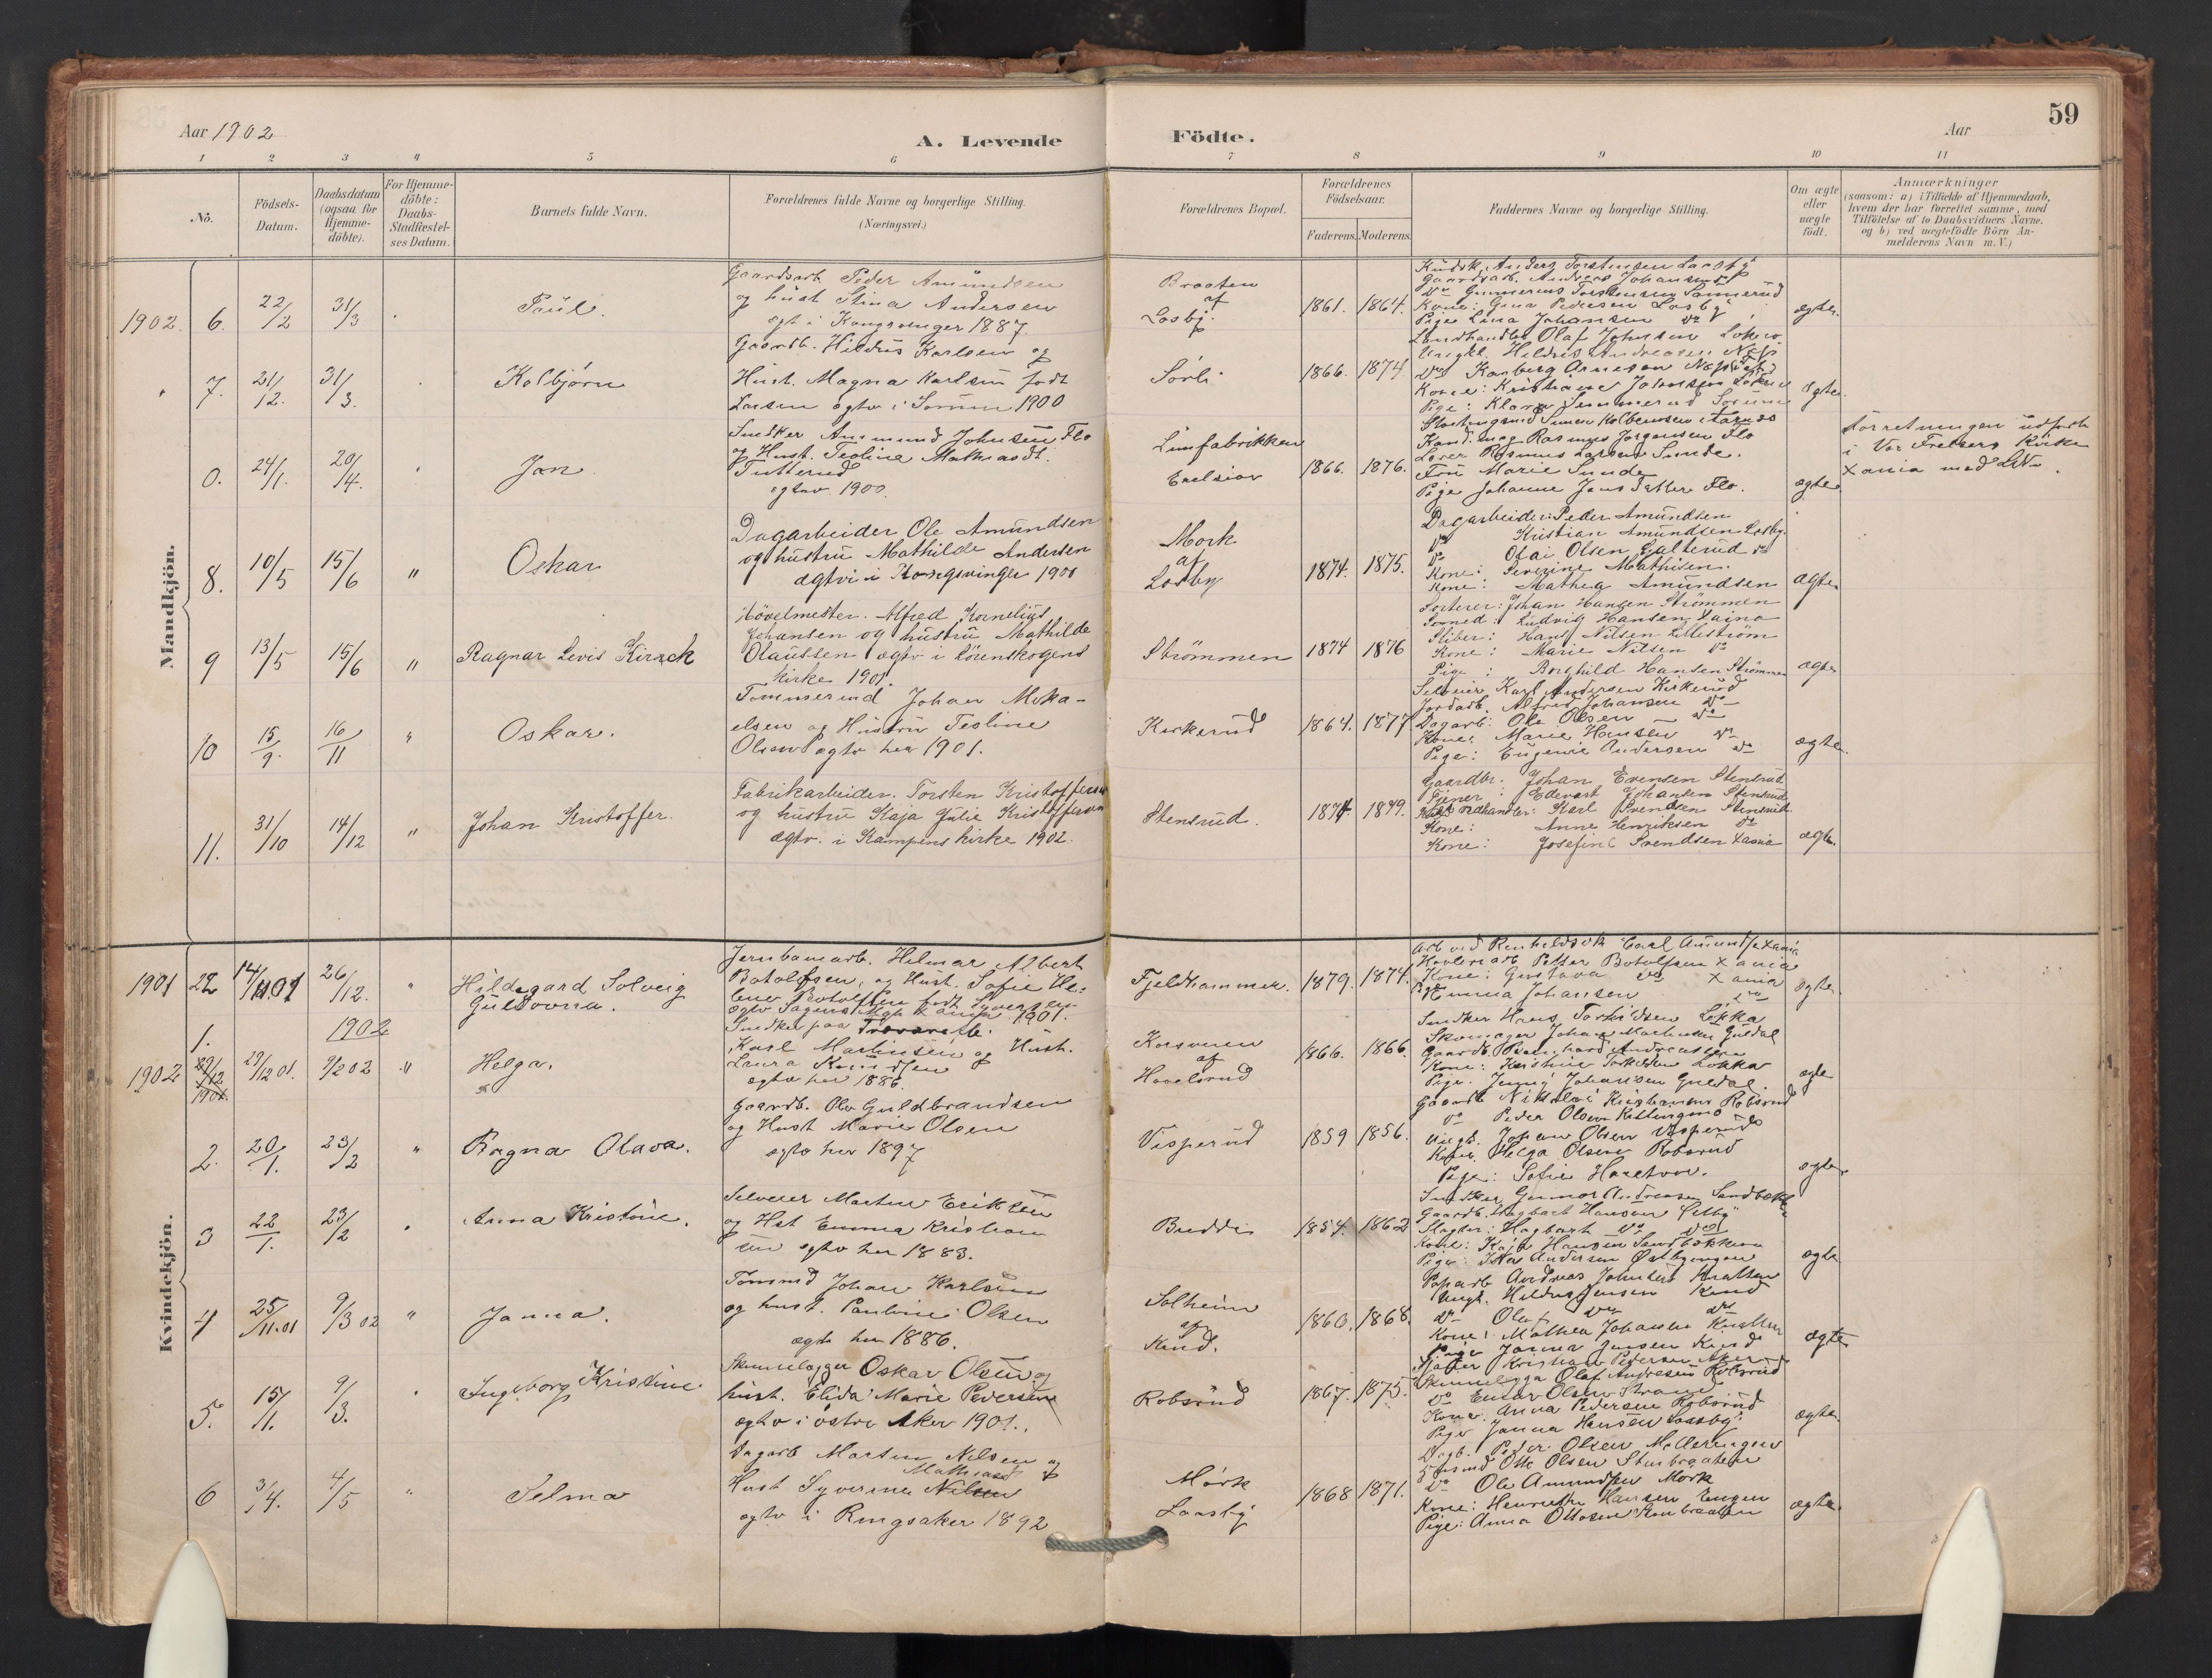 Aar 1902
A. Levende
Födte.
Aar
59
1
2
3
4
5
6
7
8
9
10
11
No.
Födsels-
Datum.
Daabsdatum
(ogsaa for
Hjemme-
döbte).
For Hjemme-
döbte:
Daabs-
Stadfæstel-
ses Datum.
Barnets fulde Navn.
Forældrenes fulde Navne og borgerlige Stilling.
(Næringsvei.)
Forældrenes Bopæl.
Forældrenes
Födselsaar.
Faderens.
Moderens.
Faddernes Navne og borgerlige Stilling.
Om ægte
eller
uægte
födt.
Anmærkninger
(saasom: a) i Tilfælde af Hjemmedaab,
hvem der har forrettet samme, med
Tilföielse af to Daabsvidners Navne.
og b) ved uægtefödte Börn An-
melderens Navn m. V.)
Mandkjön.
1902. 6. 22/2 31/3 Paul.
Gaardarb. Peder Amundsen
og hust Stina Andersen
egt i Kongsvinger 1887.
Braaten
af
Losby.
1861. 1864.
Kudsk. Anders Torstensen Laasby
Gaardarb. Andreas Johansen
Do Gunnerius Torstensen Sannerud
Kone: Gina Pedersen Losby
Pige Lina Johansen do
ægte.
" 7. 21/12. 31/3. Kolbjørn
Gaardb. Hildus Karlsen og
Hust. Magna Karlsen født
Larsen ægtv i Sørum 1900
Sørli
1866. 1874
Landhandler Olaf Johnsen Løken
Ungkl. Hildus Andreasen Næs
Kone: Kristiane Johnsen Løken
Pige: Klara Sørum
ægte.
0. 24/1. 20/4. Jan.
Snedker Aamund Johnsen Flo
og Hust. Teoline
Tutterud
egtev 1900.
Limfabrikken
Exelsior
1866. 1876.
Kand. mag Rasmus Jørgensen Flo
Lærer Rasmus Larsen Sunde.
Fru Marie Sunde
Pige Johanne Jans Datter Flo.
ægte
Forretningen udført
i Vor Frelsers Kirke
Xania
8. 10/5 15/6 " Oskar
Dagarbeider Ole Amundsen
og hustru Mathilde Andersen
ægtvi i Kongsvinger 1901
Mork
af
Losby
1874. 1875.
Dagarbeider: Peder Amundsen
Do Kristian Amundsen Losby
Do Olai Olsen Galterud do
Kone: Severine Mathisen.
Kone: Mathea Amundsen
Ægte
9 13/5 15/6 " Ragnar Levis Kirsck
Høvelmester. Alfred Kornelius
Johansen og hustru Mathilde
Olaussen ægtv i Lörenskogens
kirke 1901.
Strömmen
1874 1876
Sorterer: Johan Hansen Strömmen
Formed: Ludvig Hansen Xania
Sliber: Hans Nilsen Lilleström
Kone: Marie Nilsen do
Pige: Borghild Hansen Strömmen
ægte
10 15/9. 16/11 " Oskar.
Tømmermd Johan Mika-
elsen og Hustru Teoline
Olsen ægtv her 1901.
Kirkerud
1864. 1877
Selveier Karl Andersen Kirkerud
Jordarb. Alfred Johansen do
Dagarb: Ole Olsen do
Kone: Marie Hansen do
Pige: Eugenie Andersen do
ægte.
11. 31/10 14/12 " Johan Kristoffer.
Fabrikarbeider. Torsten Kristoffersen
og hustru Kaja Julie Kristoffersen
ægtv. i Kampens kirke 1902.
Stensrud.
1874 1879.
Gaardbr. Johan Evensen Stensrud
Tjener: Edevart Johansen Stensrud
Karl Svendsen Stensrud
Kone: Anne Henriksen do
Kone: Josefine Svendsen Xania
ægte.
Kvindekjön.
1901 22 14/11.01 26/12. " Hildegard Solveig
Guldovna.
Jernbanearb. Helmar Albert
Botolfsen, og Hust. Sofie He-
lene Botolfsen født Syversen
1901.
Fjeldhammer.
1879. 1874.
Petter Botolfsen Xania
Kone: Gustava do Xania
Pige Emma Johansen do
ægte.
1902
1902 1. 29/12 1901 29/12 01. 9/2 02 " Helga.
Snedker paa
Karl Martinsen og Hust.
Laura
egtv her 1886.
Korsveien
af
Hovelsrud
1866. 1866.
Snedker Hans Torkildsen Løkka
Skomager Johan Martinsen Guldal
Gaardb. Bernhard Andreassen
Kone: Kristine Torkildsen Løkka
Pige. Jenny Johansen Guldal.
ægte
2. 20/1. 23/2 " Ragna Olava.
Gaardb. Ole Guldbrandsen
og Hust Marie Olsen
egtv her 1897
Visperud
1859 1856.
Gaardb Nikolai Kristiansen Robsrud
do Peder Olsen
Ungk. Johan Olsen Visperud
Kone. Helga Olsen Robsrud
Pige: Sofie
ægte.
3 22/1. 23/2 " Anna Kristine.
Selveier Martin Eriksen
og Hst Emma Kristian
sen egtv her 1883.
Budde
1854. 1862
Snedker Gunnar Andreasen Sandbæk
Gaardb. Dagbart Hansen
Slagter: Hagbart do do
Kone: Kaja Hansen Sandbækken
Pige: Andersen Østbyengen
ægte
4 25/11.01 9/3 02 " Janna.
Tømmd Johan Karlsen
og hust. Pauline Olsen
ægtv her 1886.
Solheim
af
Kind.
1860. 1868.
Paparb Andreas Johnsen Knatten
Ungk. Hildus Jensen Kind
Do Olaf do do
Kone: Mathea Johansen Knatten
Pige Janna Jensen Kind
ægte
5. 15/11. 9/3. " Ingeborg Kristine.
Skinnelægger Oskar Olsen og
hust. Elida Marie Pedersen
ægtv i østre Aker 1901.
Robsrud
1867. 1875.
Kristian Pedersen Aker
Skinnelægger Olaf Andresen Robsrud
Do Einar Olsen Strand
Kone. Anna Pedersen Robsrud
Pige Janna Hansen Laasby
ægte.
6 3/4. 4/5 " Selma
Dagarb Martin Nilsen og
Mathiasd
Hust Syverine Nilsen
egtv i Ringsaker 1892
Mørk
Laasby
1868 1871.
Dagb. Peder Olsen
Tømmd Otto Olsen
Do Ole Amundsen Mørk
Kone: Henriette Hansen Engen
Pige: Anna Ottosen
ægte.